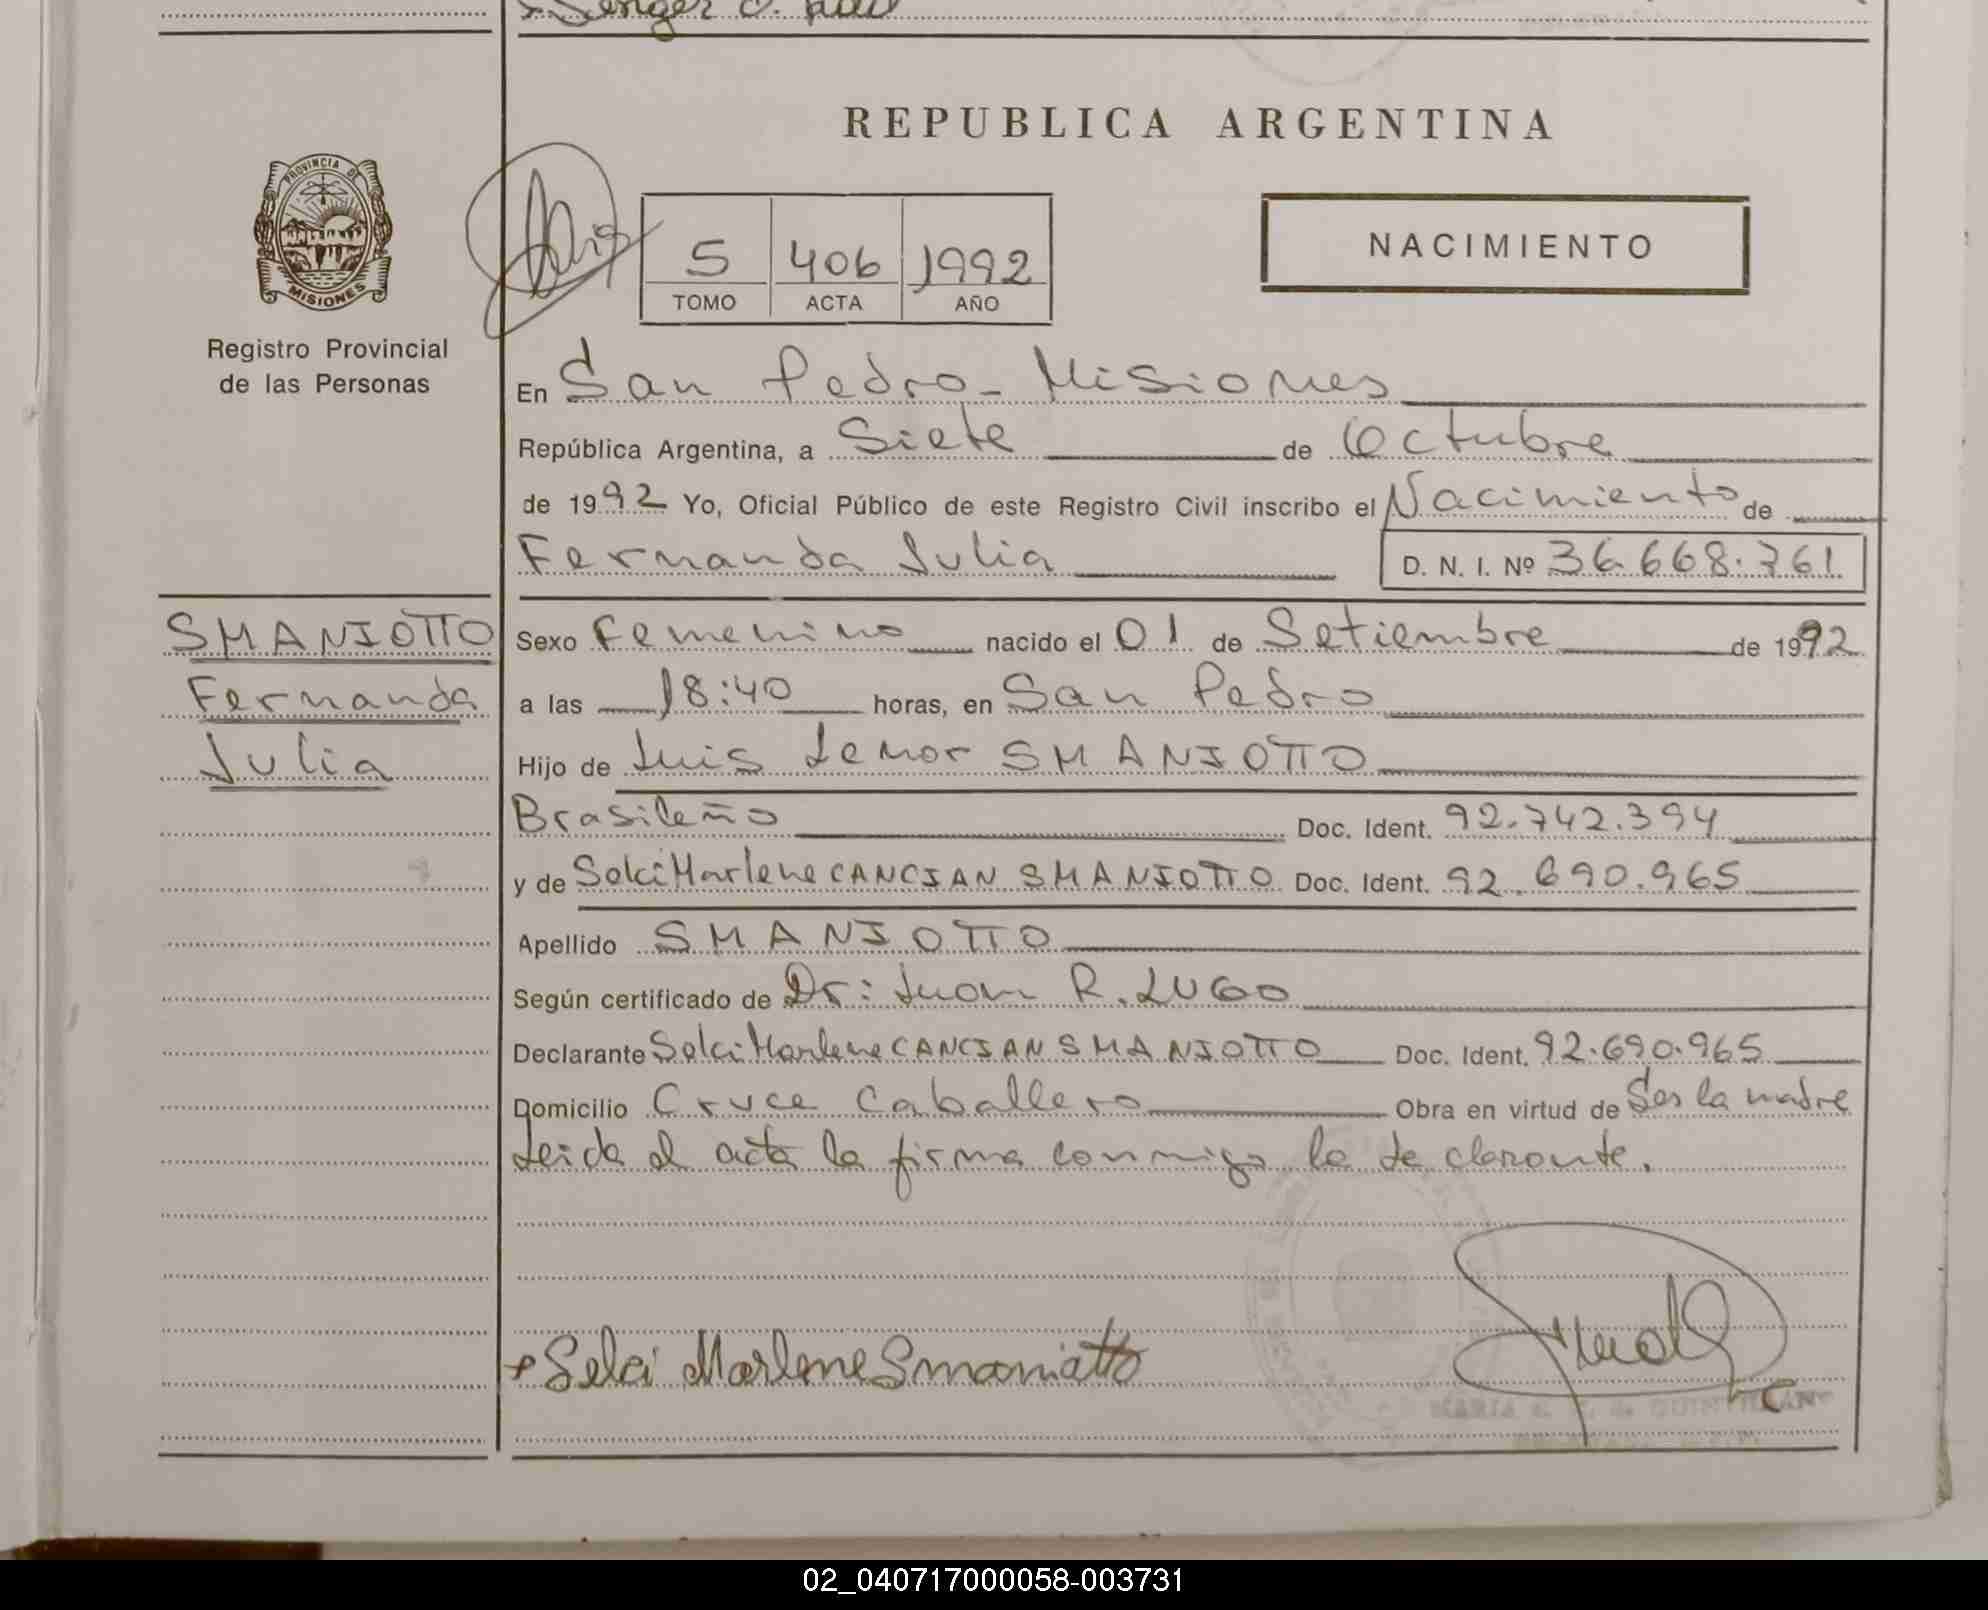 REPUBLICA ARGENTINA
PROVINCIA DE
MISIONES
Registro Provincial
de las Personas
5 406 1992
TOMO ACTA AÑO
NACIMIENTO
En San Pedro - Misiones
República Argentina, a Siete de Octubre
de 1992 Yo, Oficial Público de este Registro Civil inscribo el Nacimiento de
Fernanda Julia D. N. I. Nº 36.668.761
SMANIOTTO
Fernanda
Julia
Sexo Femenino nacido el 01 de Setiembre de 1992
a las 18:40 horas, en San Pedro
Hijo de Luis Lemor SMANIOTTO
Brasileño Doc. Ident. 92.742.394
y de Selci Marlene CANCIAN SMANIOTTO Doc. Ident. 92.690.965
Apellido SMANIOTTO
Según certificado de Dr: Juan R. LUGO
Declarante Selci Marlene CANCIAN SMANIOTTO Doc. Ident. 92.690.965
Domicilio Cruce Caballero Obra en virtud de Ser la madre
Leida el acta la firma conmigo la declarante.
Selci Marlene Smaniotto
MARIA
02_040717000058-003731